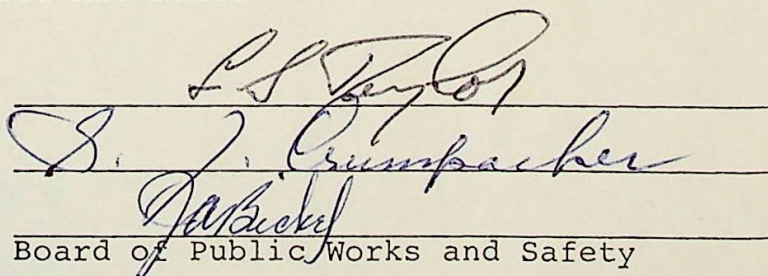 L S Taylor
S. J. Crumpacker
Bickel
Board of Public Works and Safety